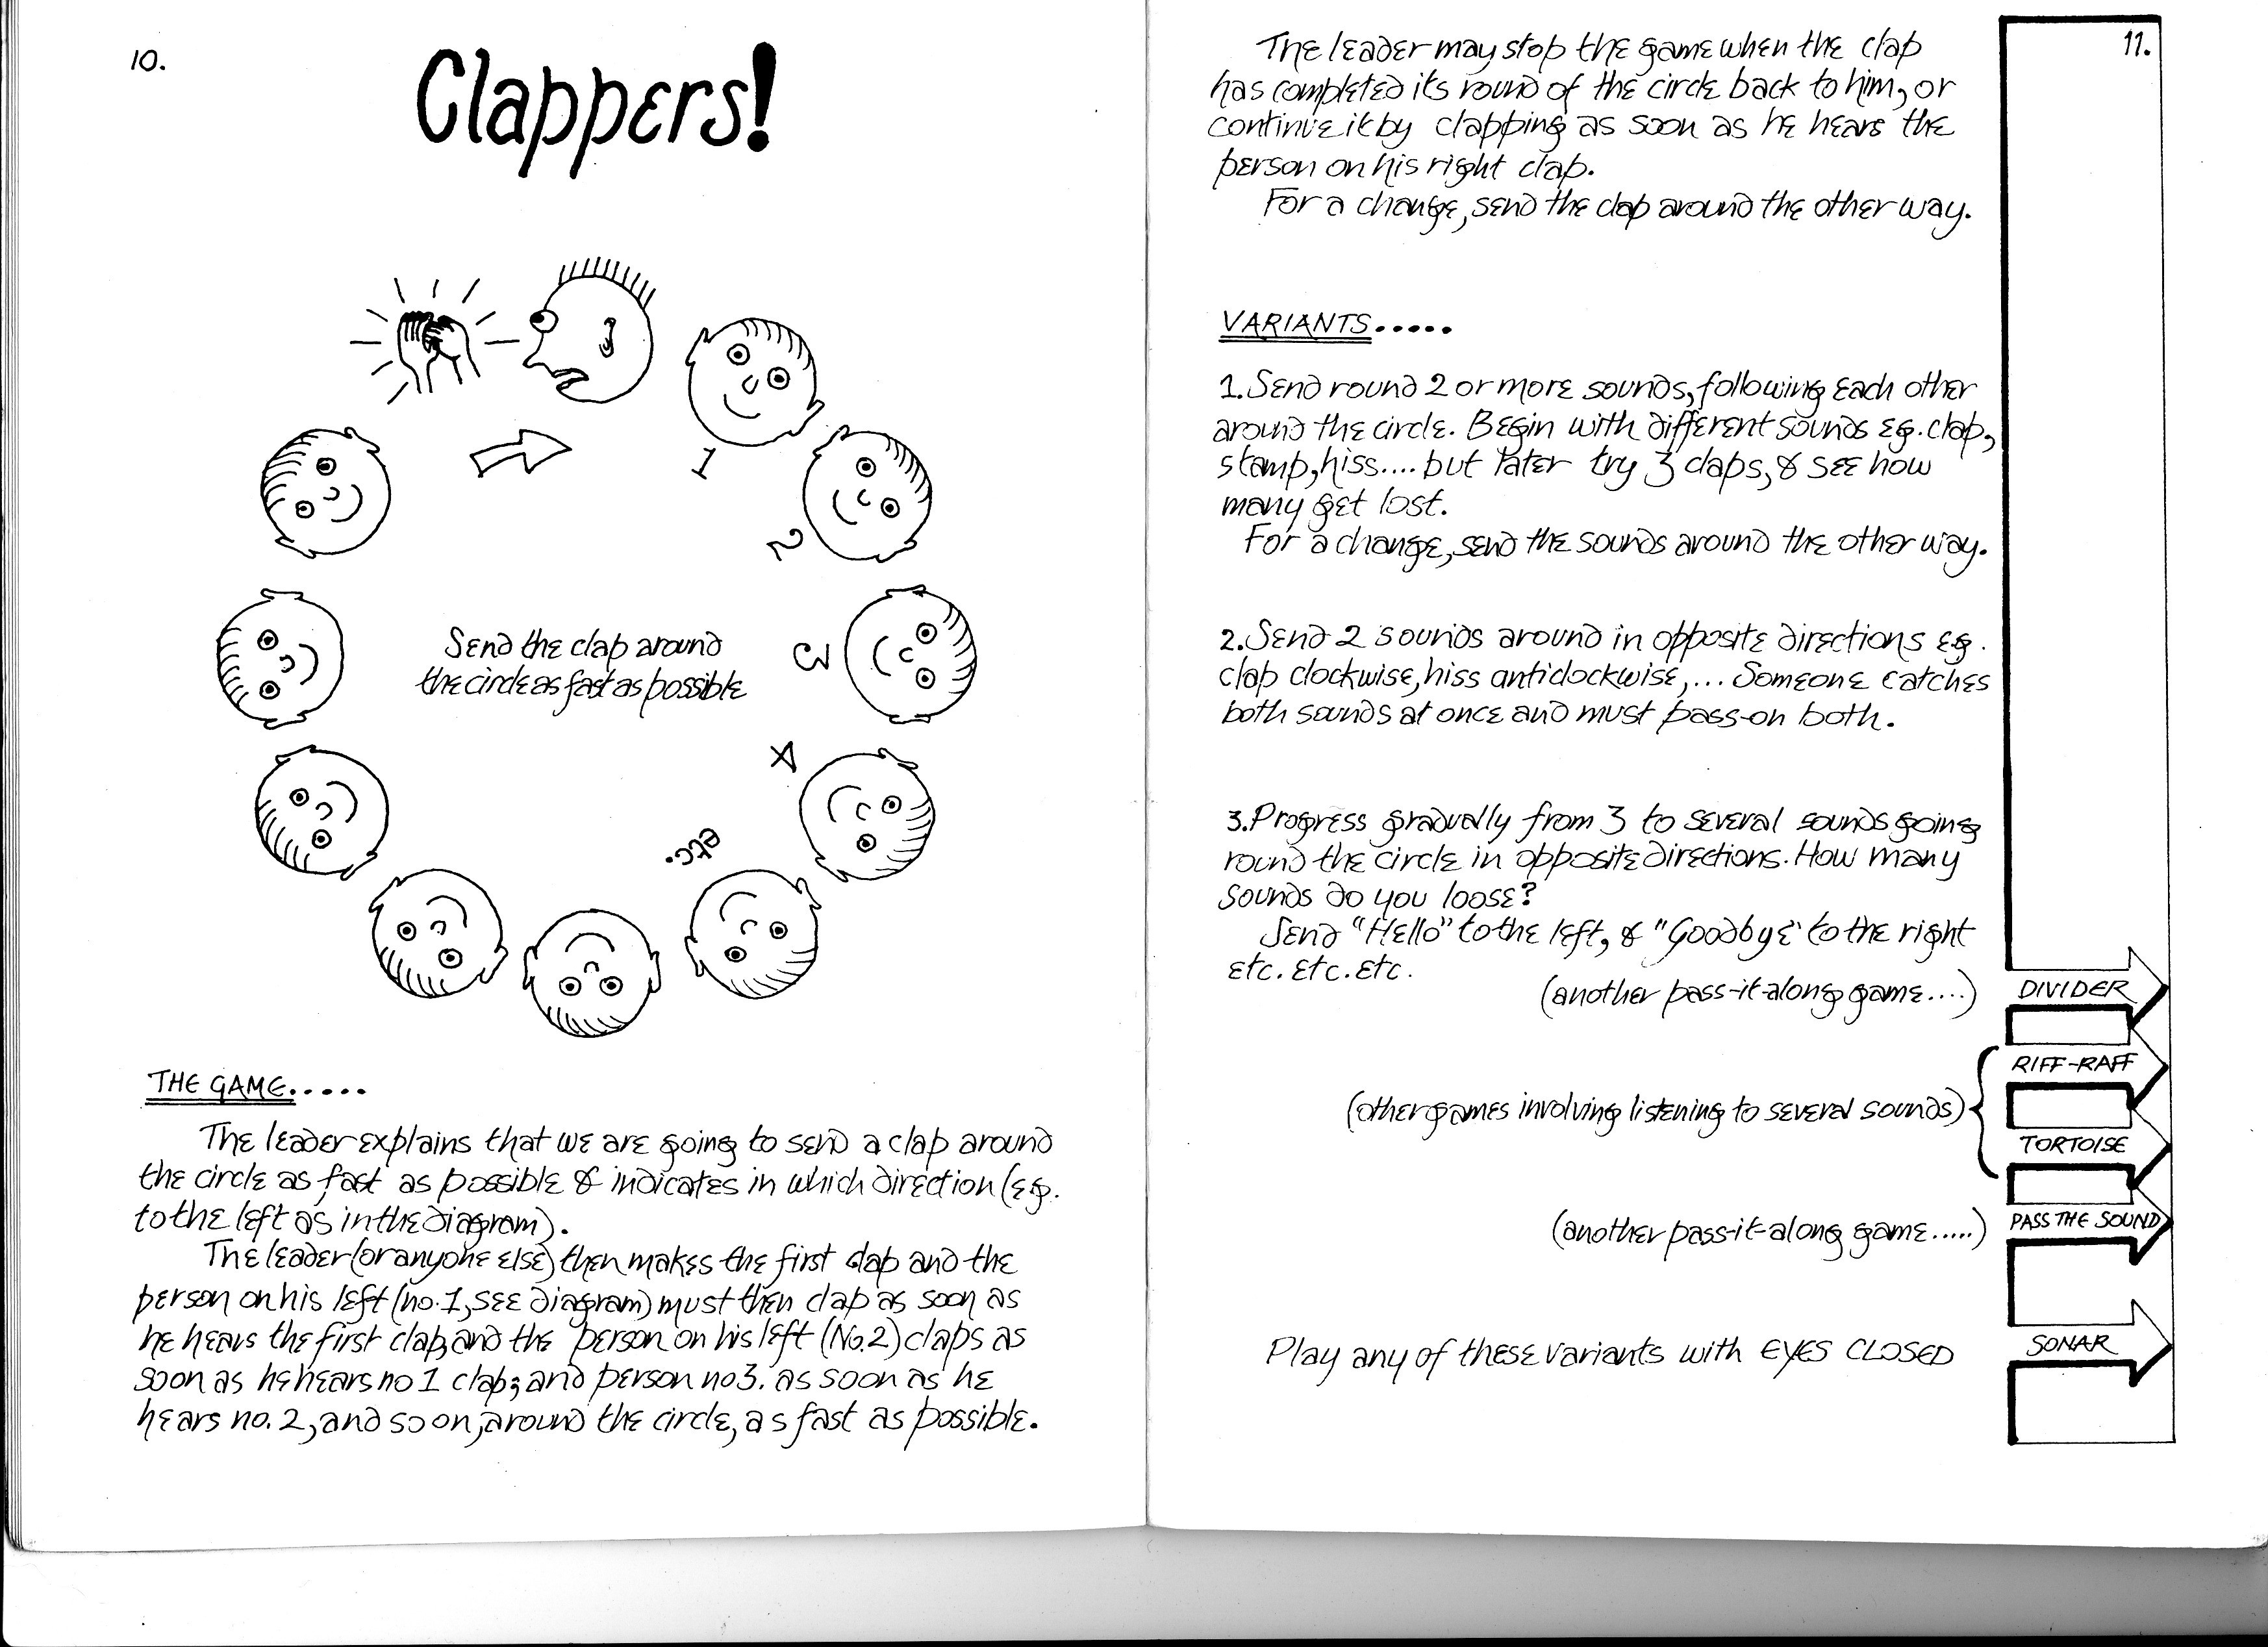 10.
Clappers!
1
2
3
4
etc.
Send the clap around
the circle as fast as possible
THE GAME.....
The leader explains that we are going to send a clap around
the circle as fast as possible & indicates in which direction (eg.
to the left as in the diagram).
The leader (or anyone else) then makes the first clap and the
person on his left (no.1, see diagram) must then clap as soon as
he hears the first clap, and the person on his left (No.2) claps as
soon as he hears no 1 clap; and person no 3. as soon as he
hears no. 2, and so on, around the circle, as fast as possible.
11.
The leader may stop the game when the clap
has completed its round of the circle back to him, or
continue it by clapping as soon as he hears the
person on his right clap.
For a change, send the clap around the other way.
VARIANTS.....
1. Send round 2 or more sounds, following each other
around the circle. Begin with different sounds eg. clap,
stamp, hiss.... but later try 3 claps, & see how
many get lost.
For a change, send the sounds around the other way.
2. Send 2 sounds around in opposite directions eg.
clap clockwise, hiss anticlockwise,... Someone catches
both sounds at once and must pass-on both.
3. Progress gradually from 3 to several sounds going
round the circle in opposite directions. How many
sounds do you loose?
Send "Hello" to the left, & "Goodbye" to the right
etc. etc. etc.
(another pass-it-along game....)
DIVIDER
RIFF-RAFF
(other games involving listening to several sounds)
TORTOISE
PASS THE SOUND
(another pass-it-along game.....)
Play any of these variants with EYES CLOSED
SONAR